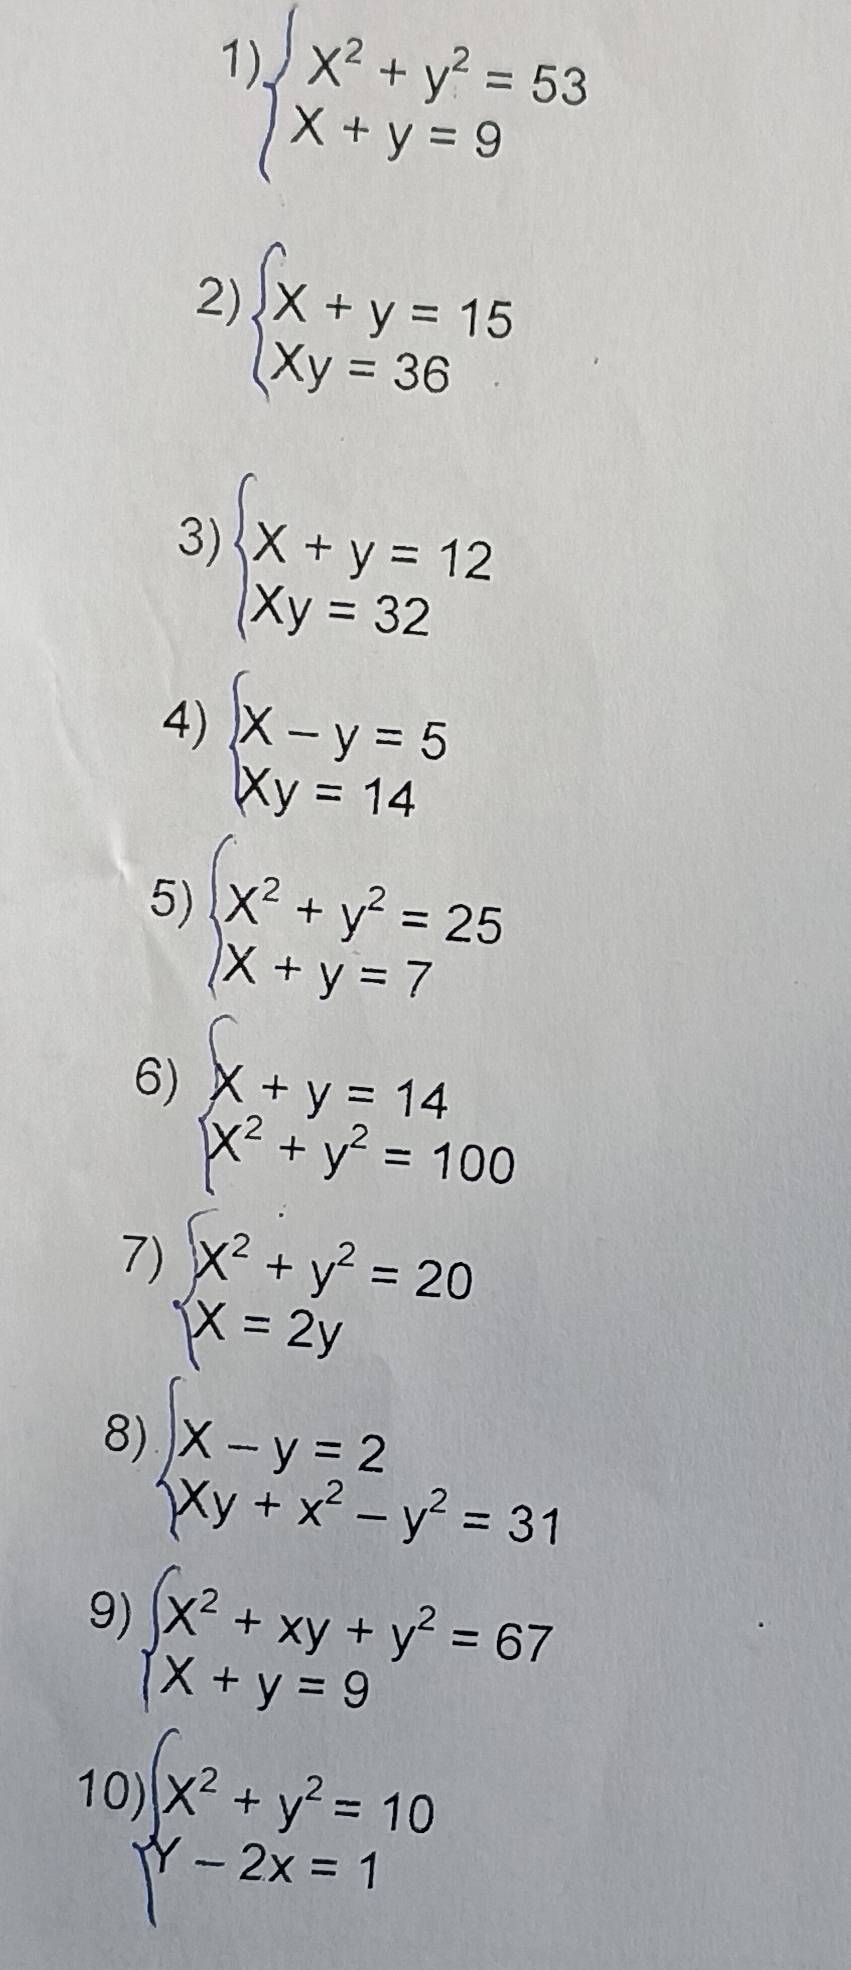 1) x² + y² = 53
x + y = 9
2) x + y = 15
xy = 36
3) x + y = 12
xy = 32
4) x – y = 5
xy = 14
5) x² + y² = 25
x + y = 7
6) x + y = 14
x² + y² = 100
7) x² + y² = 20
x = 2y
8) x – y = 2
xy + x² – y² = 31
9) x² + xy + y² = 67
x + y = 9
10) x² + y² = 10
Y – 2x = 1